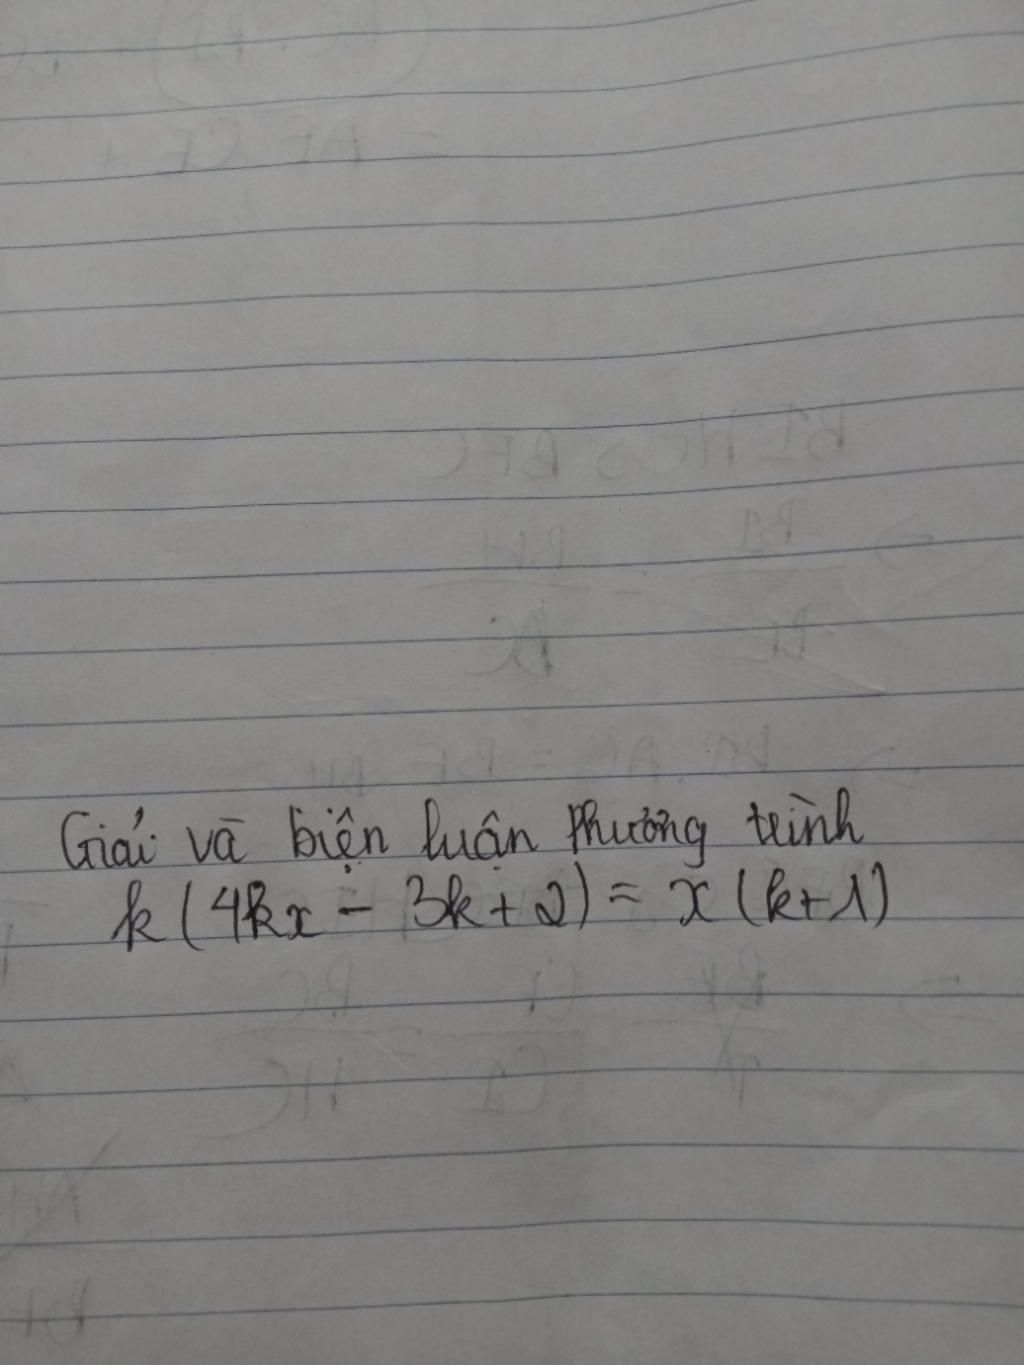 Giải và biện luận phương trình
k(4kx - 3k + 2) = x(k+1)